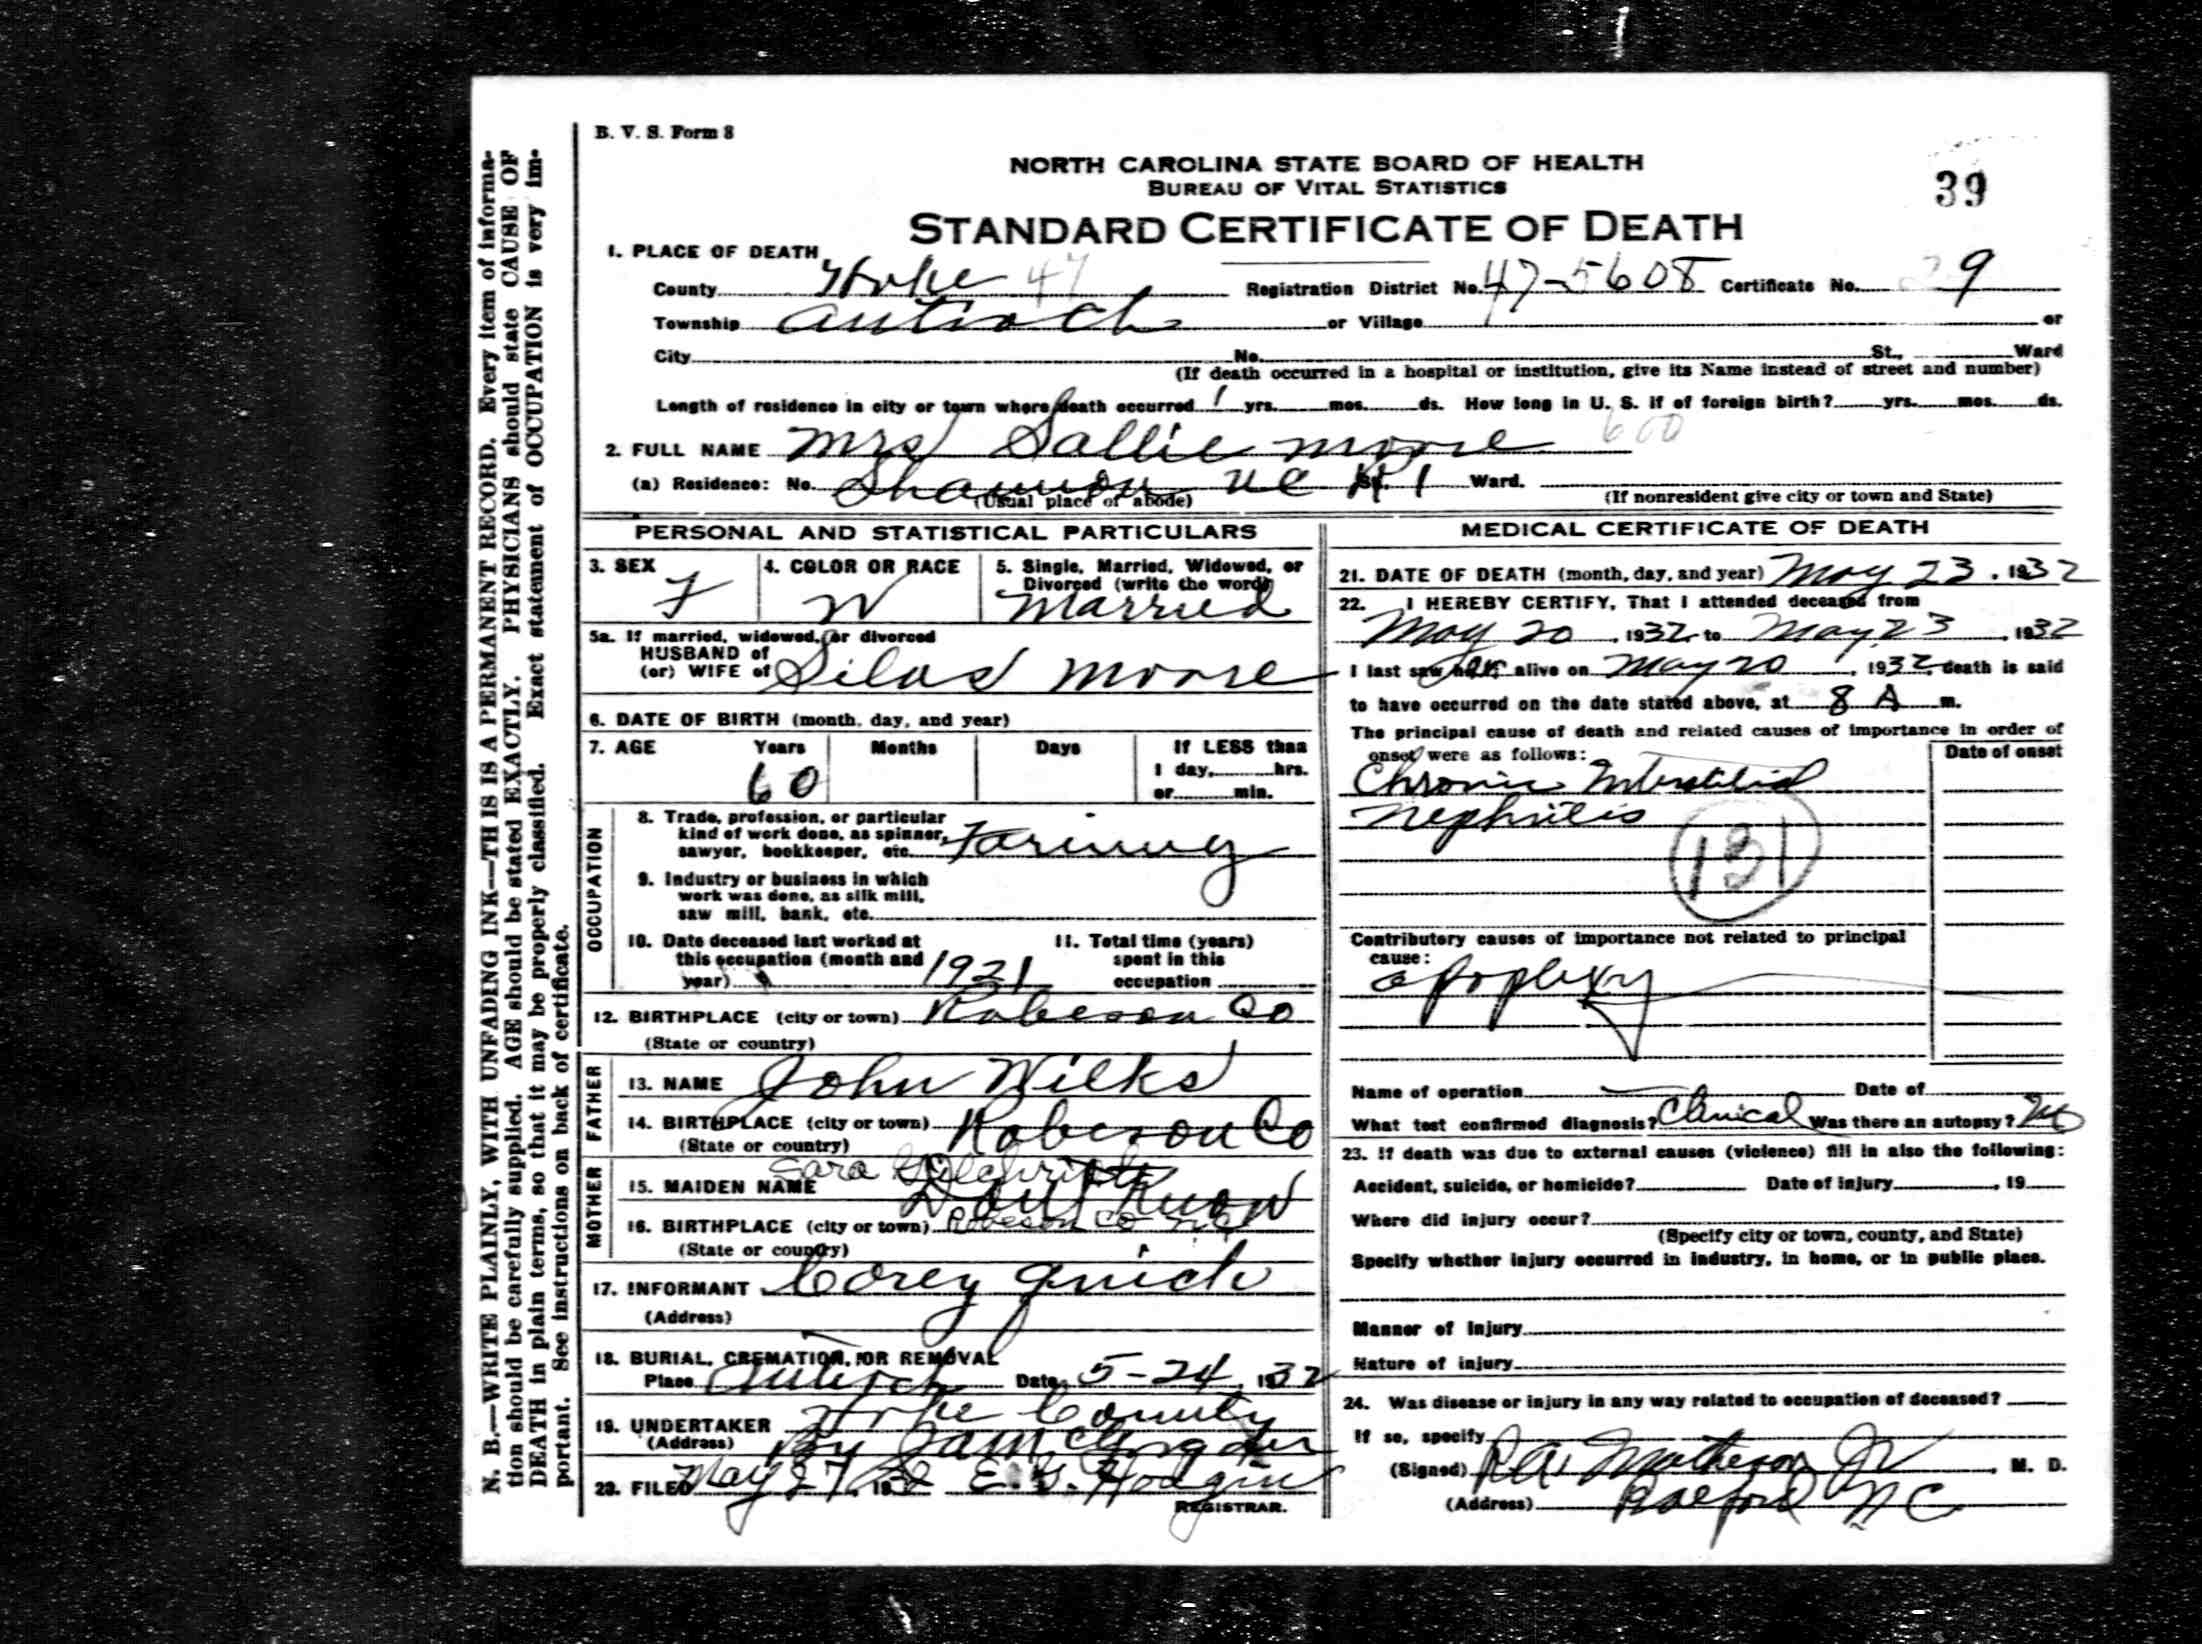 B. V. S. Form 8
NORTH CAROLINA STATE BOARD OF HEALTH
BUREAU OF VITAL STATISTICS
39
STANDARD CERTIFICATE OF DEATH
1. PLACE OF DEATH
County Hoke 47 Registration District No. 47-5608 Certificate No. 29
Township Antioch or Village or
City No. St., Ward
(If death occurred in a hospital or institution, give its Name instead of street and number)
Length of residence in city or town where death occurred 1 yrs. mos. ds. How long in U. S. if of foreign birth? yrs. mos. ds.
600
2. FULL NAME Mrs Sallie Moore
(a) Residence: No. Shannon NC R 1 St. Ward.
(Usual place of abode) (If nonresident give city or town and State)
PERSONAL AND STATISTICAL PARTICULARS
3. SEX F
4. COLOR OR RACE W
5. Single, Married, Widowed, or Divorced (write the word) Married
5a. If married, widowed, or divorced
HUSBAND of
(or) WIFE of Silas Moore
6. DATE OF BIRTH (month, day, and year)
7. AGE Years Months Days If LESS than
60 1 day, hrs.
or min.
OCCUPATION
8. Trade, profession, or particular
kind of work done, as spinner,
sawyer, bookkeeper, etc. Farming
9. Industry or business in which
work was done, as silk mill,
saw mill, bank, etc.
10. Date deceased last worked at
this occupation (month and
year) 1921
11. Total time (years)
spent in this
occupation
12. BIRTHPLACE (city or town) Robeson Co
(State or country)
FATHER
13. NAME John Wilks
14. BIRTHPLACE (city or town) Robeson Co
(State or country)
MOTHER
Sara Gilchrist
15. MAIDEN NAME Dont Know
16. BIRTHPLACE (city or town) Robeson Co N.C.
(State or country)
17. INFORMANT Corey Quick
(Address)
18. BURIAL, CREMATION, OR REMOVAL
Place Antioch Date 5-24, 1932
19. UNDERTAKER Hoke County
(Address) By
20. FILED May 27, 1932 E. G. Hodgin
REGISTRAR.
MEDICAL CERTIFICATE OF DEATH
21. DATE OF DEATH (month, day, and year) May 23, 1932
22. I HEREBY CERTIFY, That I attended deceased from
May 20, 1932 to May 23, 1932
I last saw her alive on May 20, 1932, death is said
to have occurred on the date stated above, at 8 A m.
The principal cause of death and related causes of importance in order of
onset were as follows: Date of onset
Chronic Interstitial
Nephritis
131
Contributory causes of importance not related to principal
cause:
apoplexy
Name of operation Date of
What test confirmed diagnosis? Clinical Was there an autopsy? No
23. If death was due to external causes (violence) fill in also the following:
Accident, suicide, or homicide? Date of injury, 19
Where did injury occur?
(Specify city or town, county, and State)
Specify whether injury occurred in industry, in home, or in public place.
Manner of injury
Nature of injury
24. Was disease or injury in any way related to occupation of deceased?
If so, specify
(Signed) R A Matheson Jr, M. D.
(Address) Raeford N C
N. B.—WRITE PLAINLY, WITH UNFADING INK—THIS IS A PERMANENT RECORD. Every item of informa-
tion should be carefully supplied. AGE should be stated EXACTLY. PHYSICIANS should state CAUSE OF
DEATH in plain terms, so that it may be properly classified. Exact statement of OCCUPATION is very im-
portant. See instructions on back of certificate.